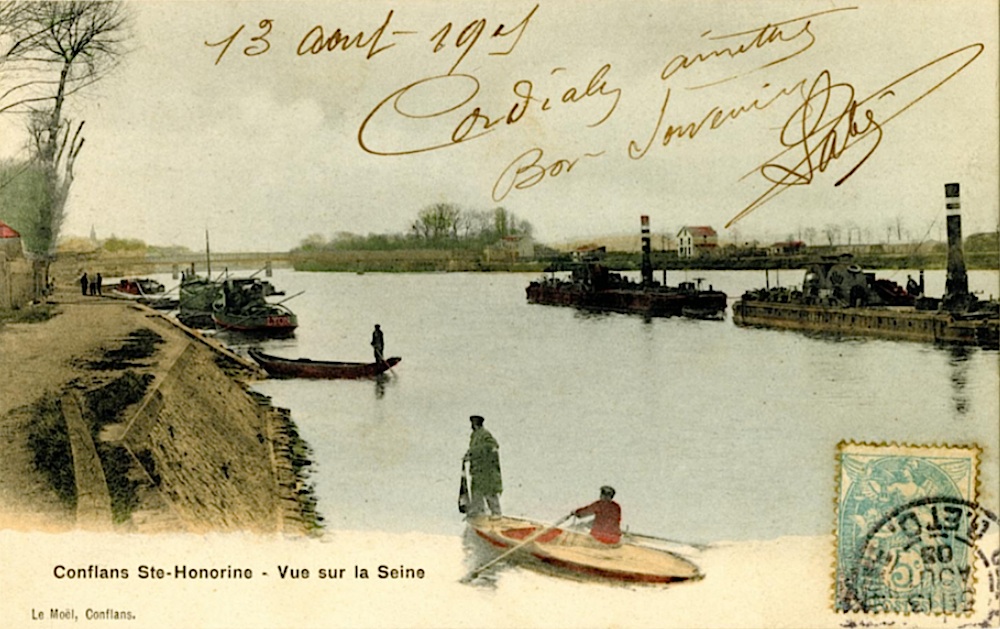 13 août 1905
Cordiales amitiés
Bon Souvenir
Conflans Ste-Honorine - Vue sur la Seine
Le Moël, Conflans.
5c